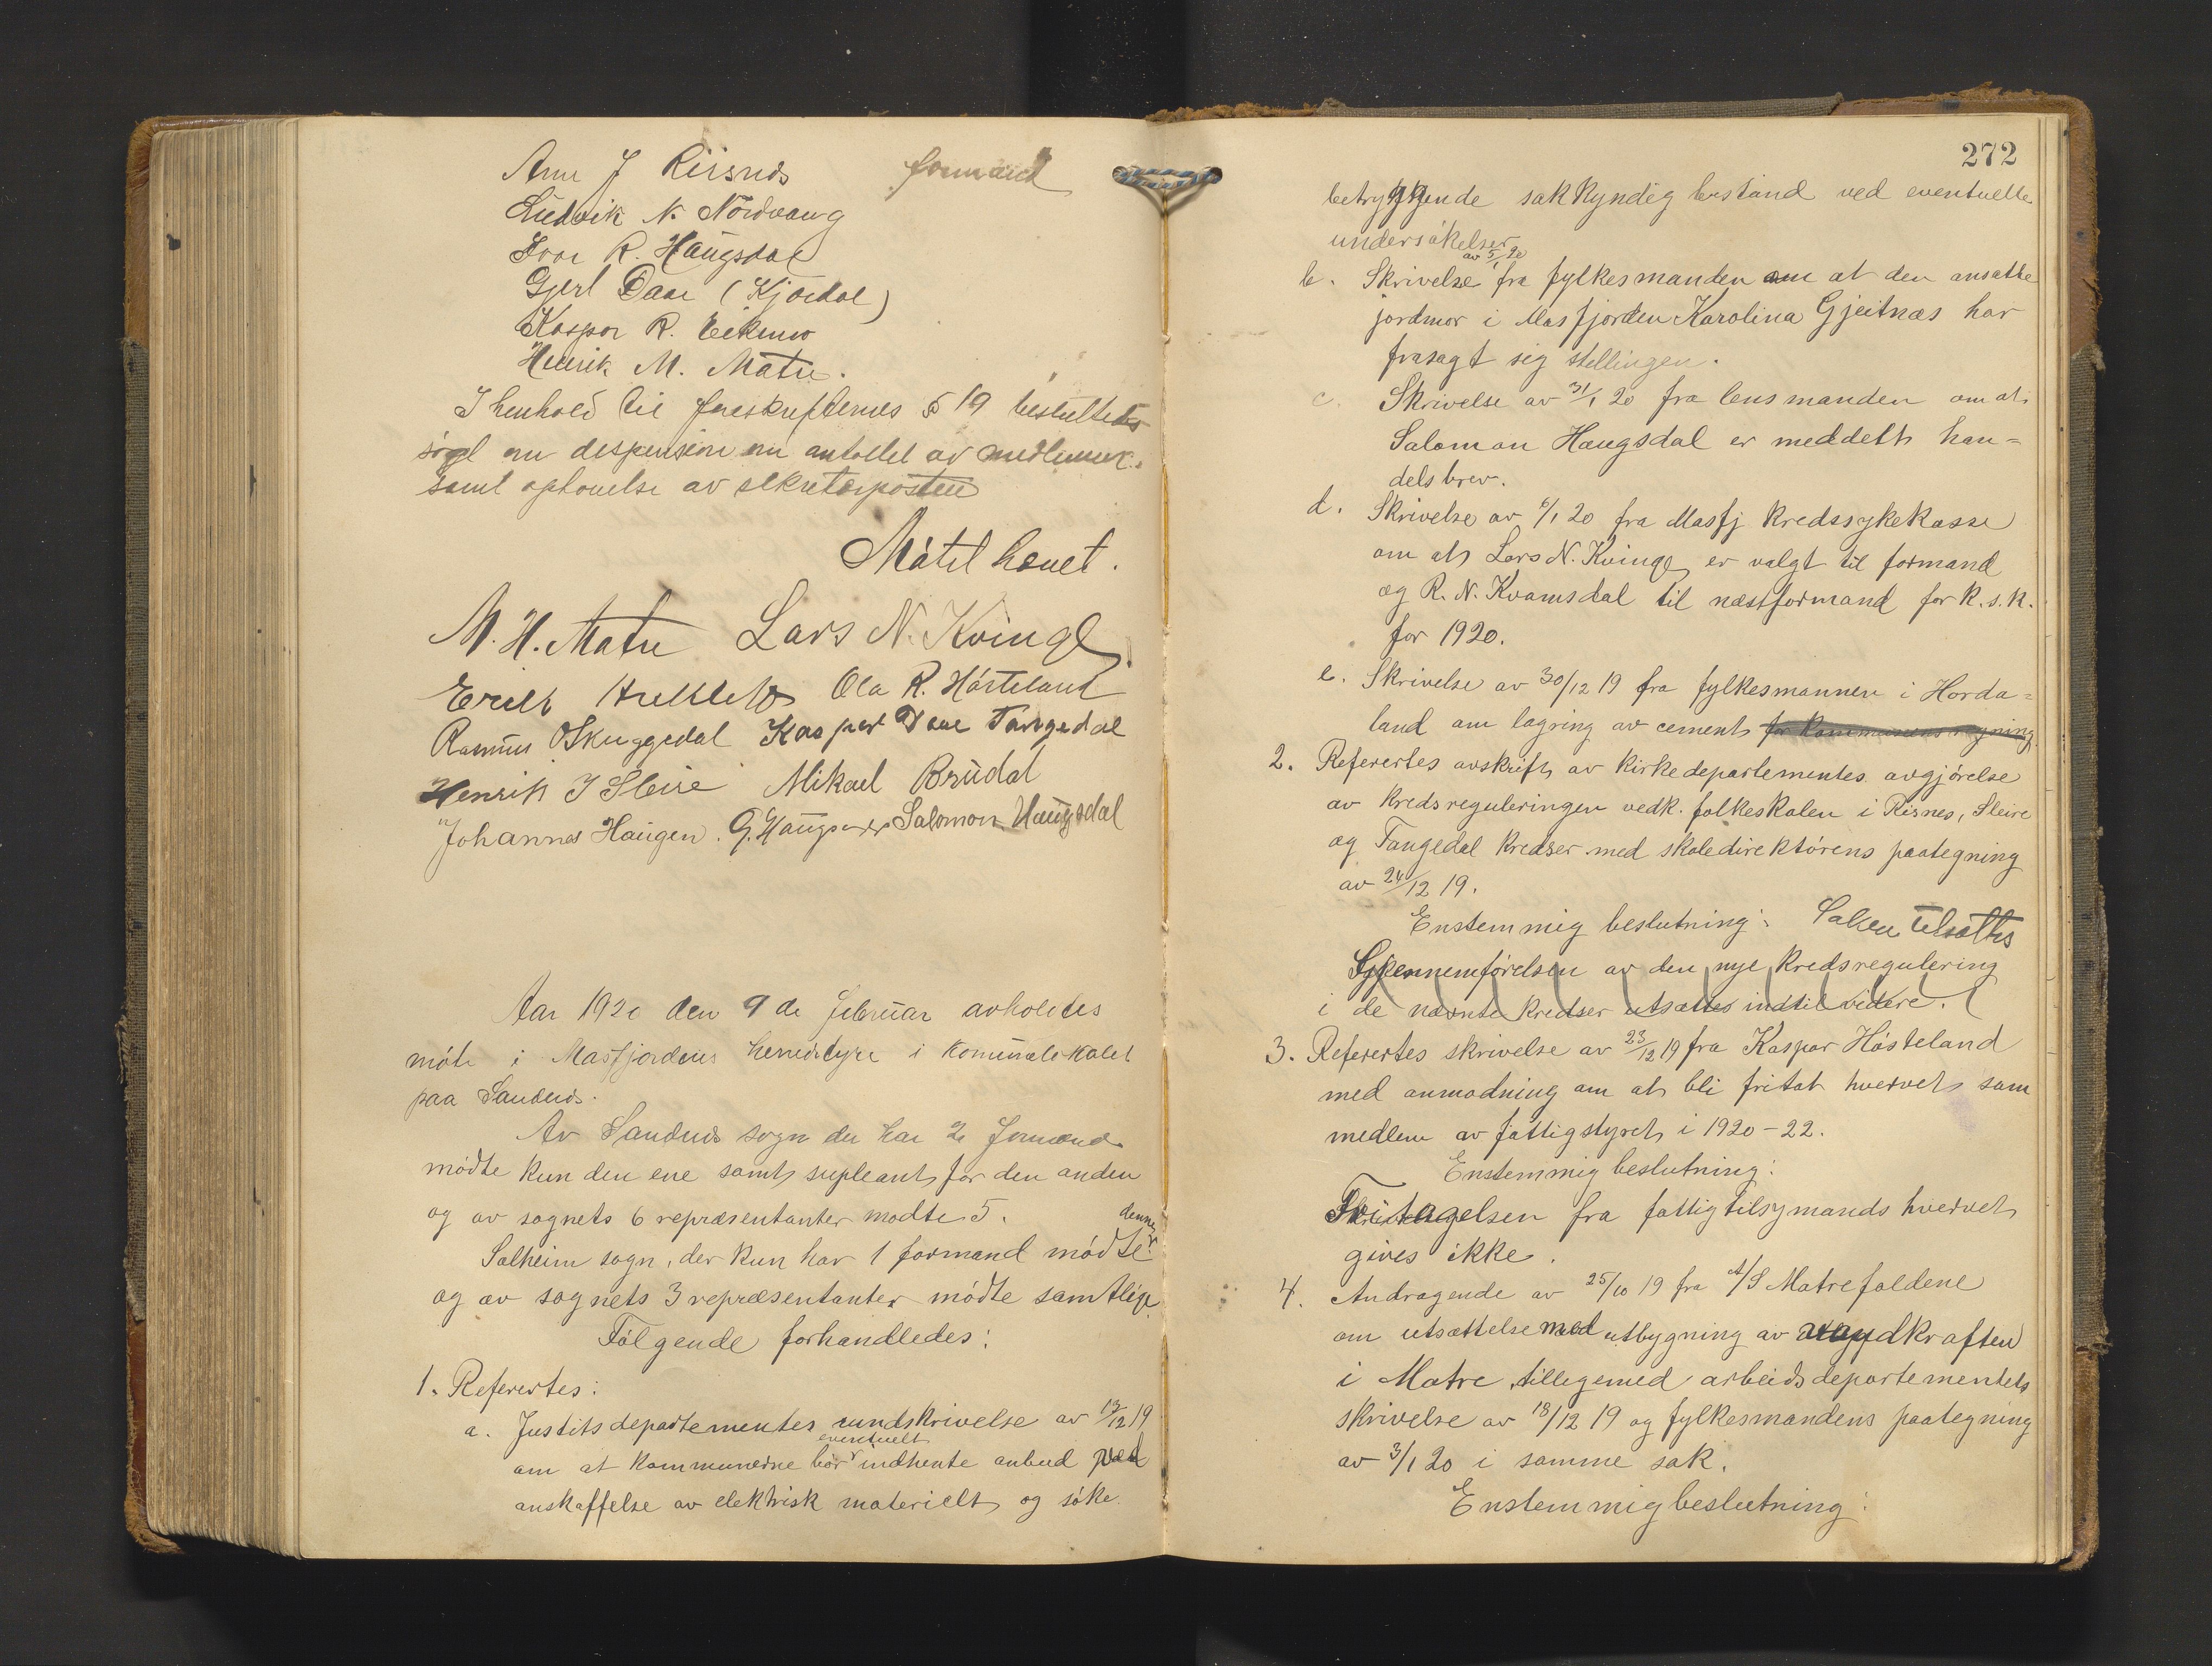 Arne J Riisnes formand
Ludvik N. Nordvang
Ivar R. Haugsdal
Gjert Daae (Kjordal)
Kaspar R. Eikemo
Henrik M. Matre.
I henhold til forskrifternes § 19 besluttedes
søgt om dispension om antallet av medlemmer
samt ophævelse av sekretærposten
Møtet hævet.
M. H. Matre Lars N. Kvinge
Ola R. Hosteland
Rasmus O Skuggedal Kaspert Daae Tangedal
Henrik J Sleire Mikael Brudal
Johannes Haugen. G. Haugsvær Salomon Haugsdal
Aar 1920 den 9 de februar avholdes
møte i Masfjordens herredstyre i komunelokalet
paa Sandnes.
Av Sandnes sogn der har 2 formænd
mødte kun den ene samt supleant for den anden
og av sognets 6 repræsentanter mødte 5.
Solheim sogn, der kun har 1 formand mødte denne
og av sognets 3 repræsentanter mødte samtlige
Følgende forhandledes:
1. Referertes:
a. Justitsdepartementes rundskrivelse av 17/12 19
om at kommunerne bør eventuelt indhente anbud ved
anskaffelse av elektrisk materielt og søke
272
betryggende sakkyndig bistand ved eventuelle
undersøkelser
b. Skrivelse av 5/1 20 fra fylkesmanden om at den ansatte
jordmor i Masfjorden Karolina Gjeitnæs har
frasagt sig stillingen.
c. Skrivelse av 31/1 20 fra lensmanden om at
Salomon Haugsdal er meddelt han=
delsbrev.
d. Skrivelse av 6/1 20 fra Masfj kredssykekasse
om at Lars N. Kvinge er valgt til formand
og R. N. Kvamsdal til næstformand for k.s.k.
for 1920.
e. Skrivelse av 30/12 19 fra fylkesmannen i Horda=
land om lagring av cement for kommunens regning.
2. Referertes avskrift av kirkedepartementes avgjørelse
av kredsreguleringen vedk. folkeskolen i Risnes, Sleire
og Tangedal kredser med skoledirektørens paategning
av 24/12 19.
Enstemmig beslutning: Saken utsættes
Gjennemførelsen av den nye kredsregulering
i de nævnte kredser utsættes indtil videre.
3. Referertes skrivelse av 23/12 19 fra Kaspar Hosteland
med anmodning om at bli fritat hvervet som
medlem av fattigstyret i 1920-22.
Enstemmig beslutning:
Fritagelsen fra fattigtilsymands hvervet
gives ikke.
4. Andragende av 25/10 19 fra A/S Matrefaldene
om utsættelse med utbygning av vandkraften
i Matre tillegemed arbeidsdepartementets
skrivelse av 18/12 19 og fylkesmandens paategning
av 3/1 20 i samme sak.
Enstemmig beslutning: